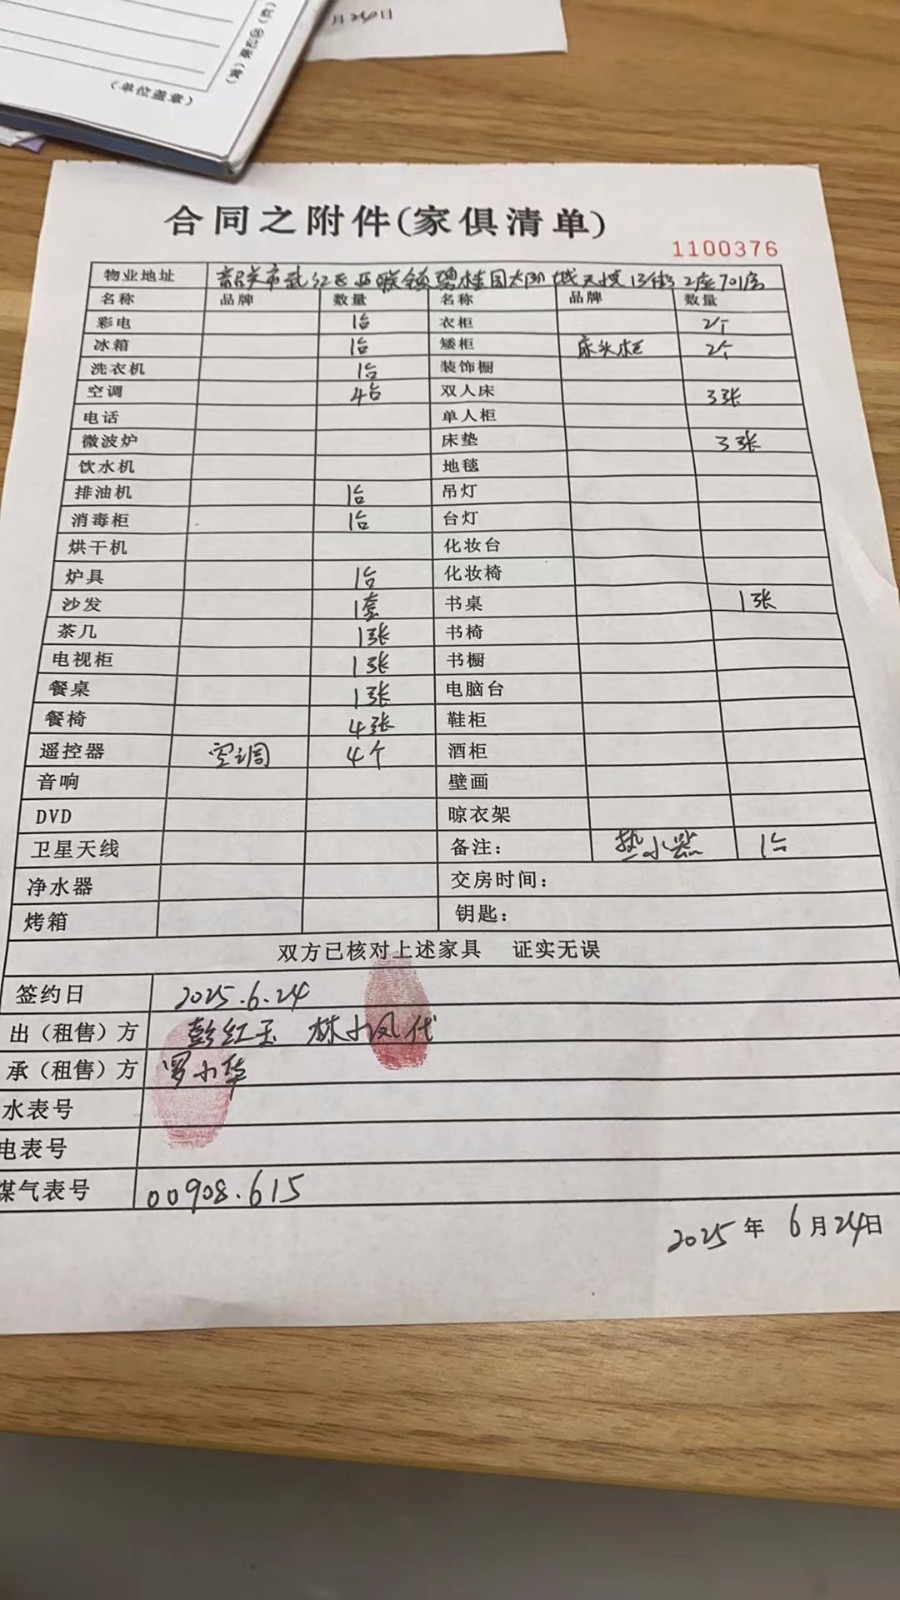 月240日
(单位盖章)
合同之附件(家俱清单)
1100376
物业地址 韶关市武江区西联镇碧桂园太阳城天悦13街2座701房
名称 品牌 数量 名称 品牌 数量
彩电 1台 衣柜 2个
冰箱 1台 矮柜 床头柜 2个
洗衣机 1台 装饰橱
空调 4台 双人床 3张
电话 单人柜
微波炉 床垫 3张
饮水机 地毯
排油机 1台 吊灯
消毒柜 1台 台灯
烘干机 化妆台
炉具 1台 化妆椅
沙发 1套 书桌 1张
茶几 1张 书椅
电视柜 1张 书橱
餐桌 1张 电脑台
餐椅 4张 鞋柜
遥控器 空调 4个 酒柜
音响 壁画
DVD 晾衣架
卫星天线 备注: 热水器 1台
净水器 交房时间:
烤箱 钥匙:
双方已核对上述家具 证实无误
签约日 2025.6.24
出(租售)方 彭红玉 林小凤代
承(租售)方 罗小华
水表号
电表号
煤气表号 00908.615
2025年6月24日